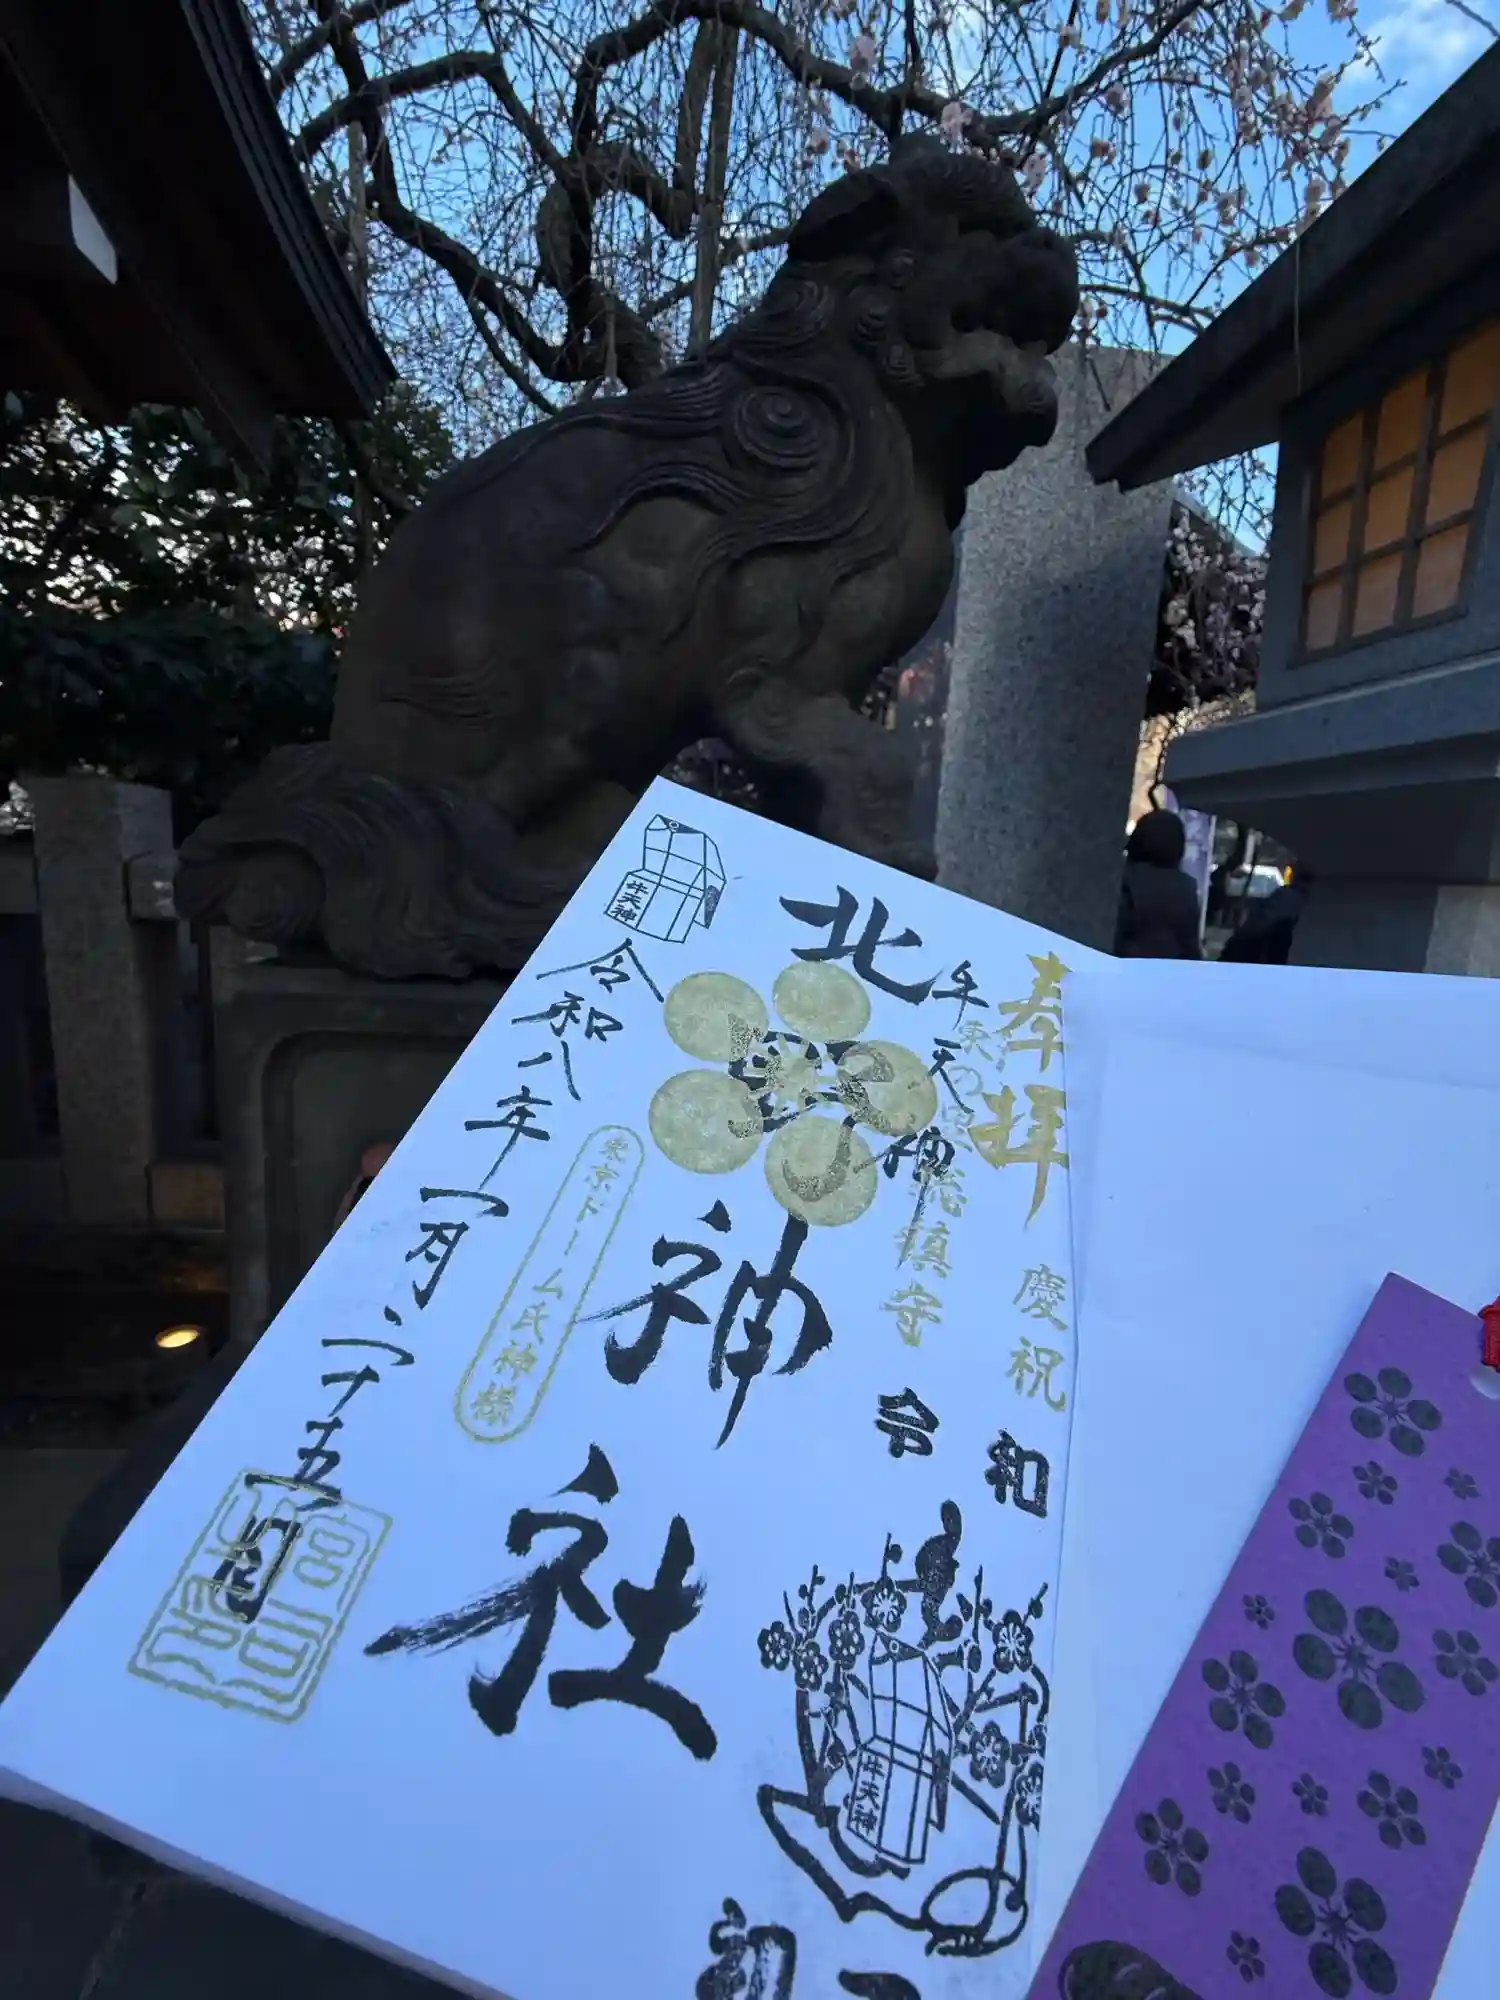 奉拝
慶祝
東の
総鎮守
牛天神
北
神社
令和
初
牛天神
東京ドーム氏神様
令和八年二月二十五日
牛天神